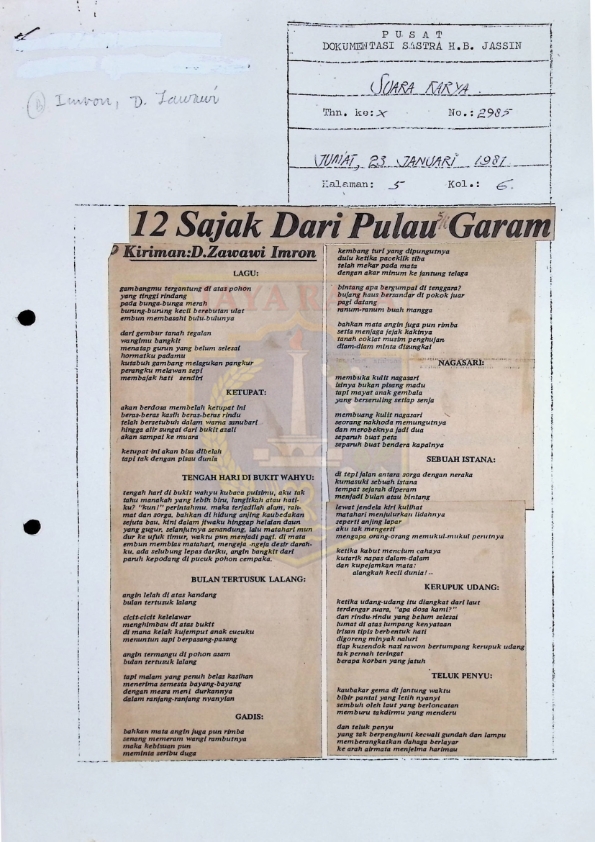 P U S A T
DOKUMENTASI SASTRA H.B. JASSIN
SUARA KARYA
Thn. ke: X No.: 2985
JUMAT, 23 JANUARI 1981
Halaman: 5 Kol.: 6.
Imron, D. Zawawi
12 Sajak Dari Pulau Garam
Kiriman:D.Zawawi Imron
LAGU:
gambangmu tergantung di atas pohon
yang tinggi rindang
pada bunga-bunga merah
burung-burung kecil berebutan ulat
embun membasahi bulu-bulunya
dari gembur tanah tegalan
wangimu bangkit
menatap gurun yang belum selesai
hormatku padamu
kutabuh gambang melagukan pangkur
perangku melawan sapi
membajak hati sendiri
KETUPAT:
akan berdosa membelah ketupat ini
beras-beras kasih beras-beras rindu
telah bersetubuh dalam warna sanubari
hingga alir sungai dari bukit azali
akan sampai ke muara
ketupat ini akan bisa dibelah
tapi tak dengan pisau dunia
TENGAH HARI DI BUKIT WAHYU:
tengah hari di bukit wahyu kubaca puisimu, aku tak
tahu manakah yang lebih biru, langitkah atau hati-
ku? "kun!" perintahmu. maka terjadilah alam, rah-
mat dan sorga. bahkan di hidung anjing kaubedakan
sejuta bau, kini dalam jiwaku hinggap helaian daun
yang gugur. selanjutnya senandung. lalu matahari mun
dur ke ufuk timur, waktu pun menjadi pagi. di mata
embun membias matahari, mengeja -ngeja desir darah-
ku. ada selubung lepas dariku, angin bangkit dari
paruh kepodang di pucuk pohon cempaka.
BULAN TERTUSUK LALANG:
angin lelah di atas kandang
bulan tertusuk lalang
cicit-cicit kelelawar
menghimbau di atas bukit
di mana kelak kujemput anak cucuku
menuntun sapi berpasang-pasang
angin termangu di pohon asam
bulan tertusuk lalang
tapi malam yang penuh belas kasihan
menerima semesta bayang-bayang
dengan mesra meni durkannya
dalam ranjang-ranjang nyanyian
GADIS:
bahkan mata angin juga pun rimba
senang memeram wangi rambutnya
maka kebisuan pun
meminta seribu duga
kembang turi yang dipungutnya
dulu ketika paceklik tiba
telah mekar pada mata
dengan akar minum ke jantung telaga
bintang apa bergumpal di tenggara?
bujang haus bersandar di pokok juar
pagi datang
ranum-ranum buah mangga
bahkan mata angin juga pun rimba
setia menjaga jejak kakinya
tanah coklat musim penghujan
diam-diam minta ditangkai
NAGASARI:
membuka kulit nagasari
isinya bukan pisang madu
tapi mayat anak gembala
yang berseruling setiap senja
membuang kulit nagasari
seorang nakhoda memungutnya
dan merobeknya jadi dua
separuh buat peta
separuh buat bendera kapalnya
SEBUAH ISTANA:
di tepi jalan antara sorga dengan neraka
kumasuki sebuah istana
tempat sejarah diperam
menjadi bulan atau bintang
lewat jendela kiri kulihat
matahari menjulurkan lidahnya
seperti anjing lapar
aku tak mengerti
mengapa orang-orang memukul-mukul perutnya
ketika kabut mencium cahaya
kutarik napas dalam-dalam
dan kupejamkan mata:
alangkah kecil dunia! –
KERUPUK UDANG:
ketika udang-udang itu diangkat dari laut
terdengar suara, "apa dosa kami?"
dan rindu-rindu yang belum selesai
lumat di atas lumpang kenyataan
irisan tipis berbentuk hati
digoreng minyak naluri
tiap kusendok nasi rawon bertumpang kerupuk udang
tak pernah teringat
berapa korban yang jatuh
TELUK PENYU:
kaubakar gema di jantung waktu
bibir pantai yang letih nyanyi
sembuh oleh laut yang berloncatan
memburu takdirmu yang menderu
dan teluk penyu
yang tak berpenghuni kecuali gundah dan lampu
memberangkatkan dahaga berlayar
ke arah airmata menjelma harimau
JAYA RAYA